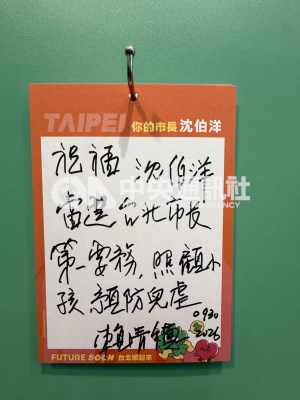 TAIPEI 你的市長 沈伯洋
祝福 沈伯洋
當選台北市長
第一要務,照顧小
孩 預防兒虐
0930
賴清德 2026
FUTURE SOON 台北順起來
中央通訊社